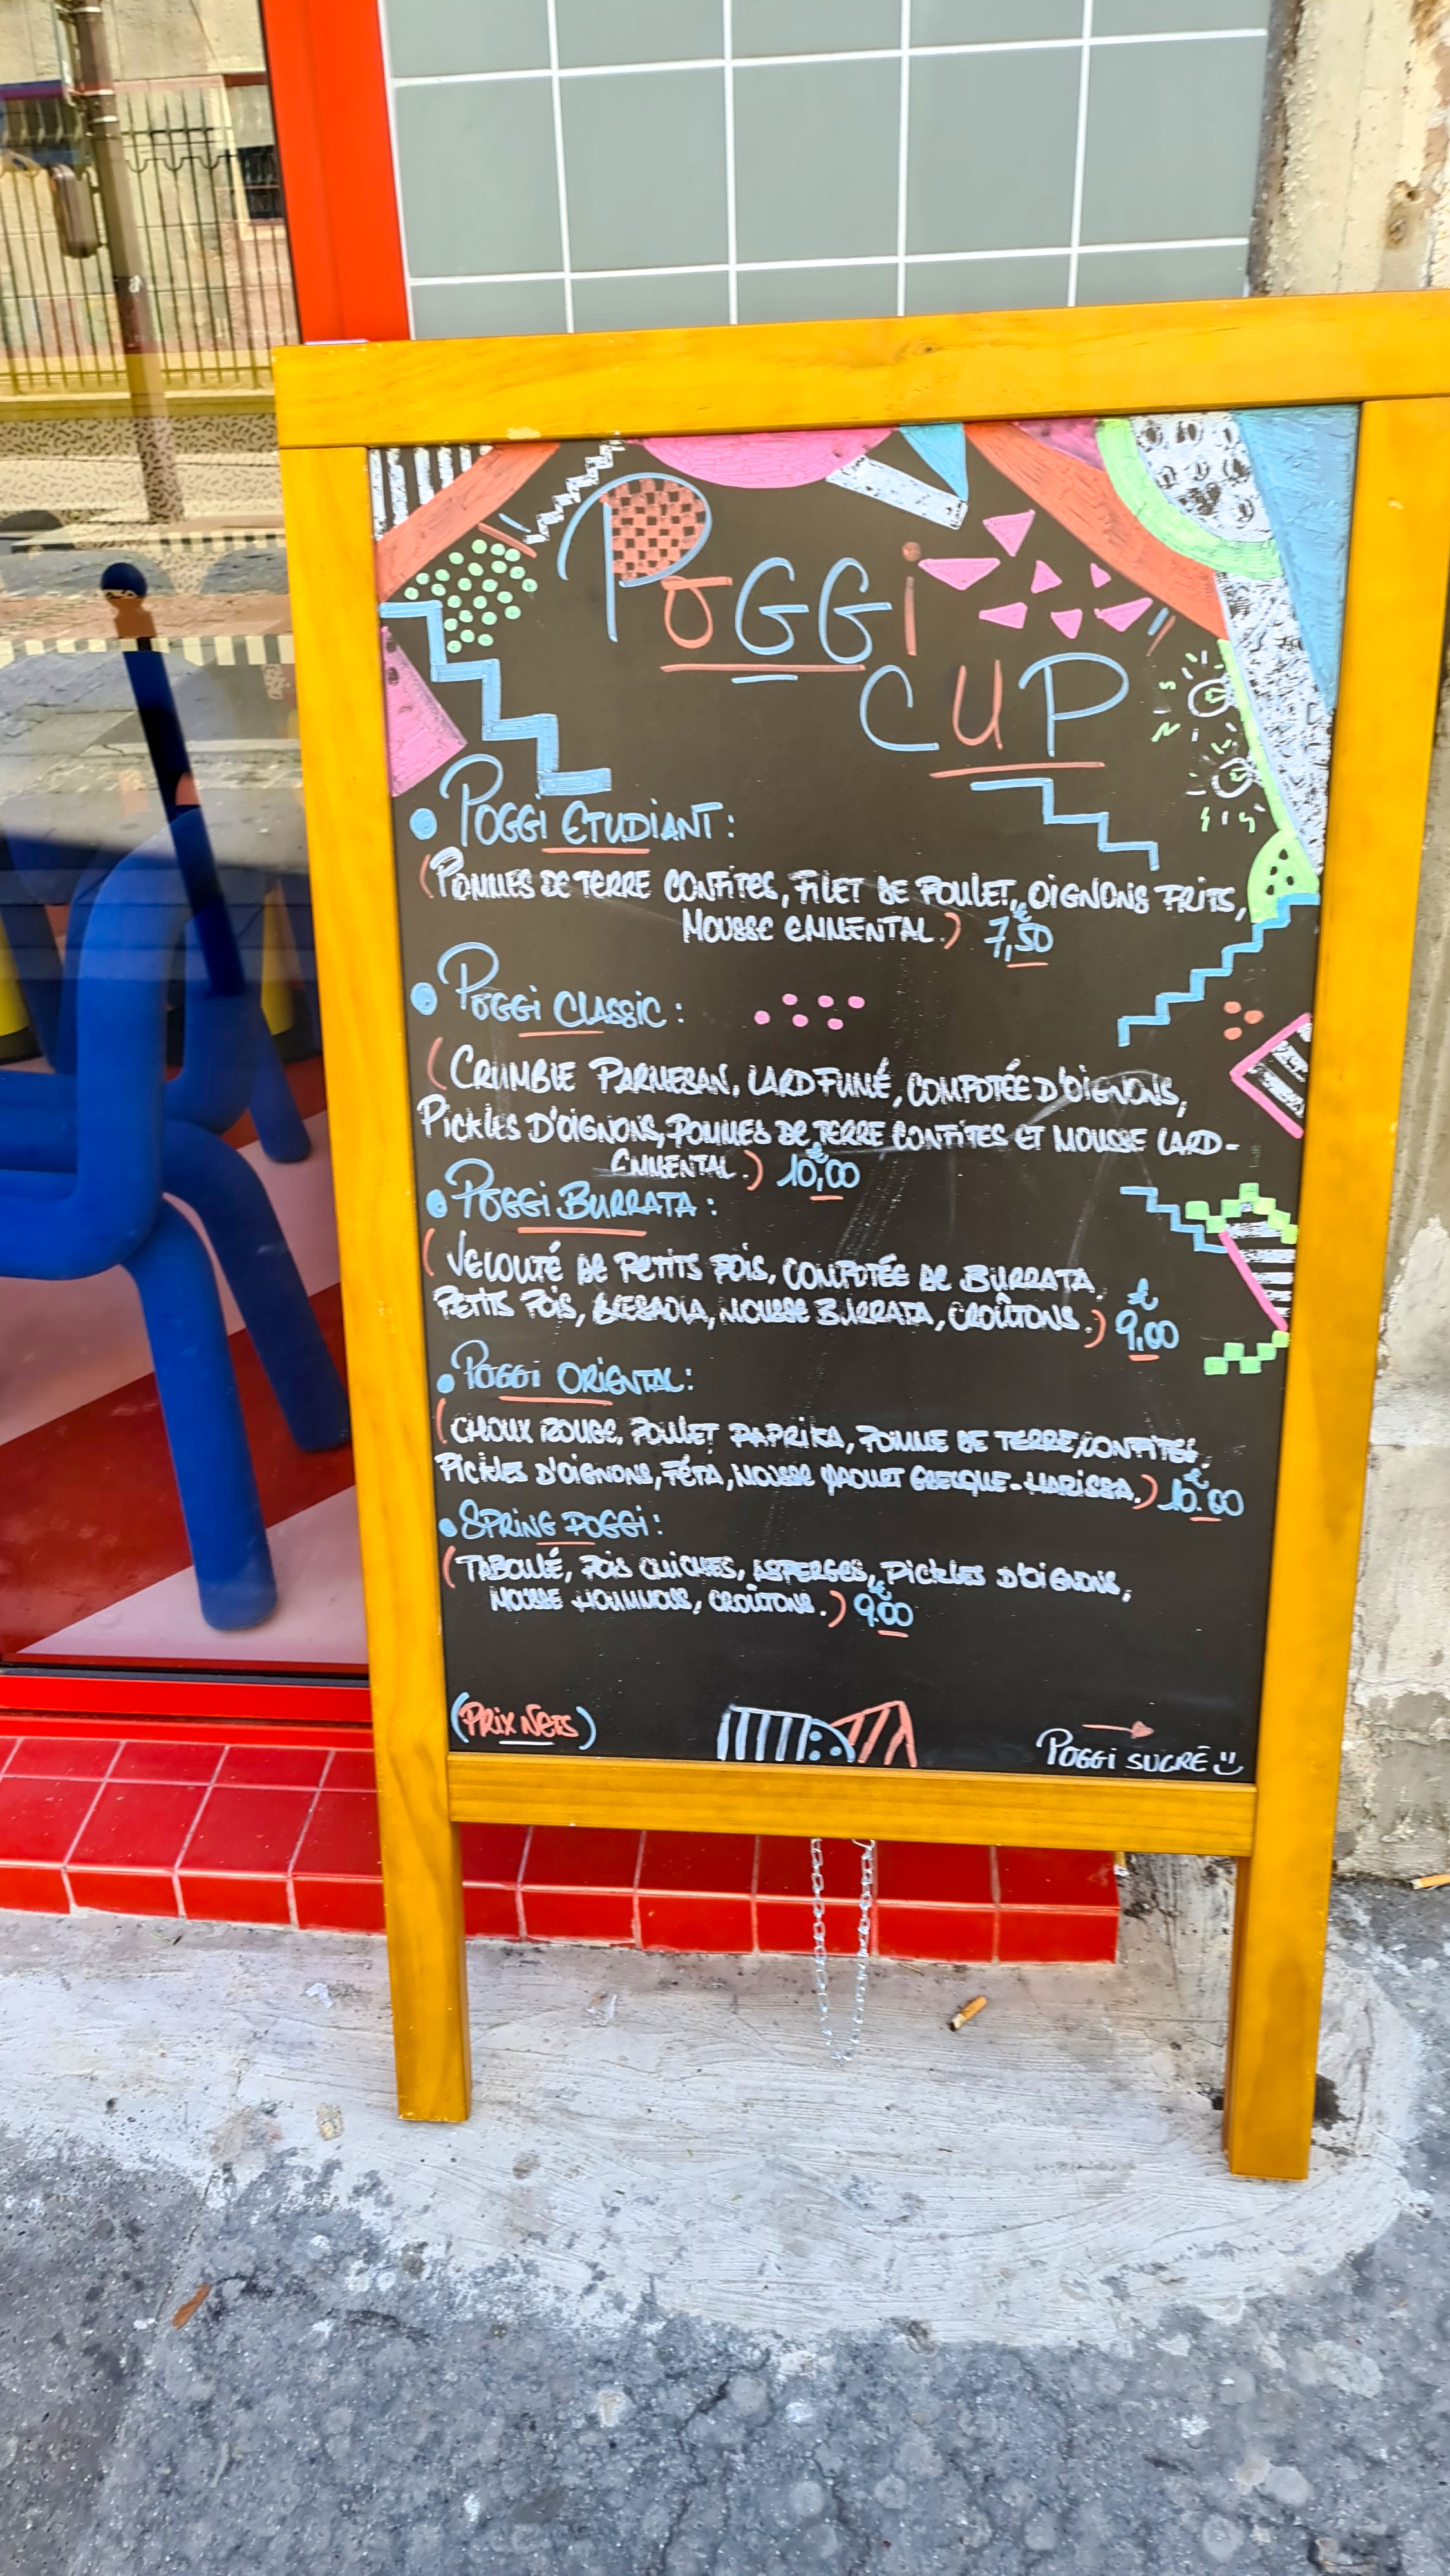 POGGi
CUP
• POGGi ETUDIANT:
(POMMES DE TERRE CONFITES, FILET DE POULET, OIGNONS FRITS,
MOUSSE EMMENTAL.) 7,50€
• POGGi CLASSIC:
(CRUMBLE PARMESAN, LARD FUMÉ, COMPOTÉE D'OIGNONS,
PICKLES D'OIGNONS, POMMES DE TERRE CONFITES ET MOUSSE LARD-
EMMENTAL.) 10,00€
• POGGi BURRATA:
(VELOUTÉ DE PETITS POIS, COMPOTÉE DE BURRATA,
PETITS POIS, BRESAOLA, MOUSSE BURRATA, CROÛTONS.) 9,00€
• POGGi ORIENTAL:
(CHOUX ROUGE, POULET PAPRIKA, POMME DE TERRE CONFITES,
PICKLES D'OIGNONS, FÉTA, MOUSSE YAOURT GRECQUE-HARISSA.) 10.00€
• SPRING POGGi:
(TABOULÉ, POIS CHICHES, ASPERGES, PICKLES D'OIGNONS,
MOUSSE HOUMMOUS, CROÛTONS.) 9.00€
(PRIX NETS)
POGGi SUCRÉ